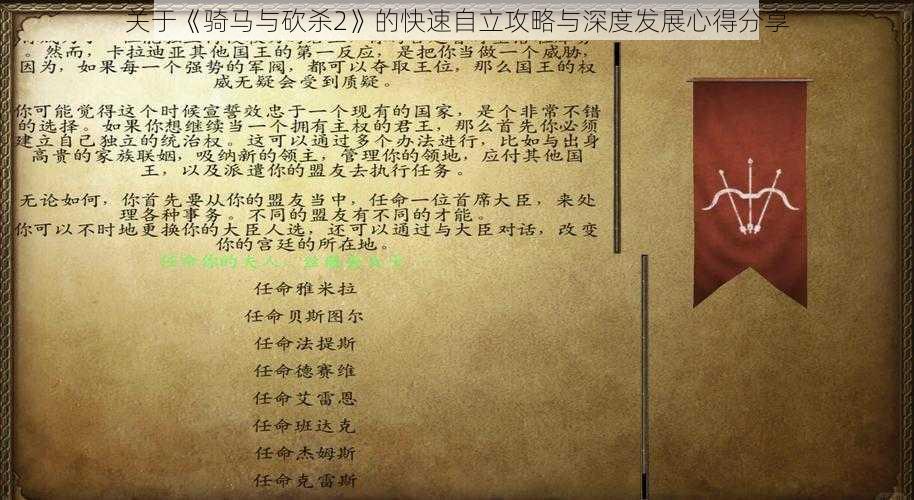 关于《骑马与砍杀2》的快速自立攻略与深度发展心得分享
。然而，卡拉迪亚其他国王的第一反应，是把你当做一个威胁，
因为，如果每一个强势的军阀，都可以夺取王位，那么国王的权
威无疑会受到质疑。
你可能觉得这个时候宣誓效忠于一个现有的国家，是个非常不错
的选择。如果你想继续当一个拥有主权的君王，那么首先你必须
建立自己独立的统治权。这可以通过多个办法进行，比如与出身
高贵的家族联姻，吸纳新的领主，管理你的领地，应付其他国
王，以及派遣你的盟友去执行任务。
无论如何，你首先要从你的盟友当中，任命一位首席大臣，来处
理各种事务。不同的盟友有不同的才能。
你可以不时地更换你的大臣人选，还可以通过与大臣对话，改变
你的宫廷的所在地。
任命你的夫人，
任命雅米拉
任命贝斯图尔
任命法提斯
任命德赛维
任命艾雷恩
任命班达克
任命杰姆斯
任命克雷斯